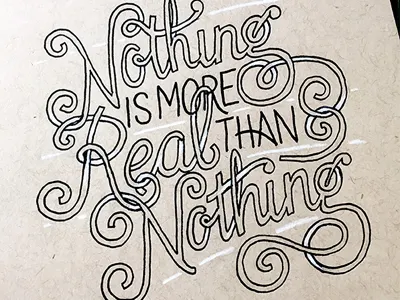 Nothing
IS MORE
Real THAN
Nothing